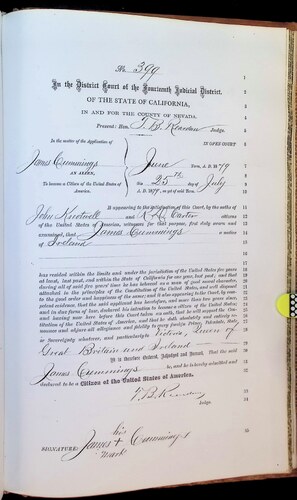 No. 399
In the District Court of the Fourteenth Judicial District.
OF THE STATE OF CALIFORNIA,
IN AND FOR THE COUNTY OF NEVADA.
Present: Hon. T. B. Reardon Judge.
In the matter of the Application of
IN OPEN COURT
James Cummings June Term, A. D. 1879
AN ALIEN,
To become a Citizen of the United States of America. this 25th day of July
A. D. 1879, as yet of said Term.
It appearing to the satisfaction of this Court, by the oaths of
John and R. D. Carter citizens
of the United States of America, witnesses for that purpose, first duly sworn and
examined, that James Cummings a native
of Ireland
has resided within the limits and under the jurisdiction of the United States five years
at least, last past, and within the State of California for one year, last past; and that
during all of said five years' time he has behaved as a man of good moral character,
attached to the principles of the Constitution of the United States, and well disposed
to the good order and happiness of the same; and it also appearing to the Court, by com-
petent evidence, that the said applicant has heretofore, and more than two years since,
and in due form of law, declared his intention to become a citizen of the United States;
and having now here before this Court taken an oath, that he will support the Con-
stitution of the United States of America, and that he doth absolutely and entirely re-
nounce and abjure all allegiance and fidelity to every foreign Prince, Potentate, State
or Sovereignty whatever, and particularly to Victoria Queen of
Great Britain and Ireland
It is therefore Ordered, Adjudged and Decreed, That the said
James Cummings be, and he is hereby admitted and
declared to be a Citizen of the United States of America.
T. B. Reardon
Judge.
his
SIGNATURE: James + Cummings
mark
1
2
3
4
5
6
7
8
9
10
11
12
13
14
15
16
17
18
19
20
21
22
23
24
25
26
27
28
29
30
31
32
33
34
35